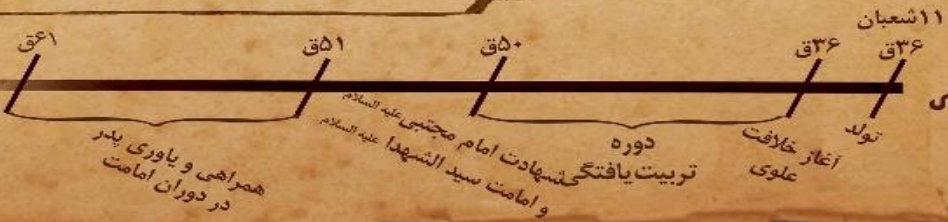 ۱۱شعبان
۳۶ق
۳۶ق
۵۰ق
۵۱ق
۶۱ق
تولد
آغاز خلافت
علوی
دوره
تربیت‌یافتگی
شهادت امام مجتبی علیه السلام
و امامت سید الشهدا علیه السلام
همراهی و یاوری پدر
در دوران امامت